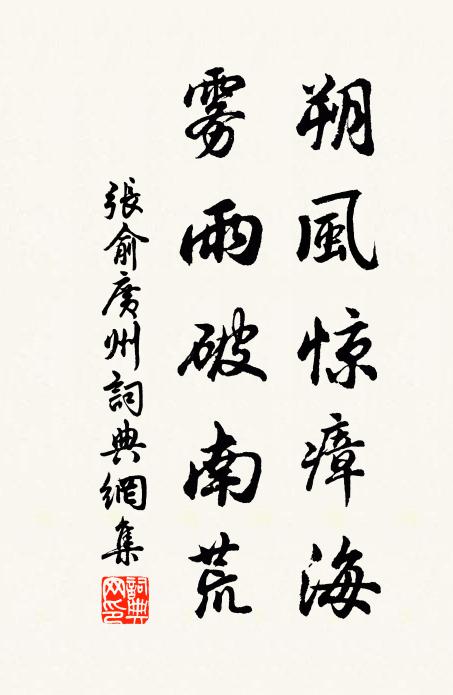 朔風惊瘴海
雾雨破南荒
張俞廣州詞典網集
詞典网印